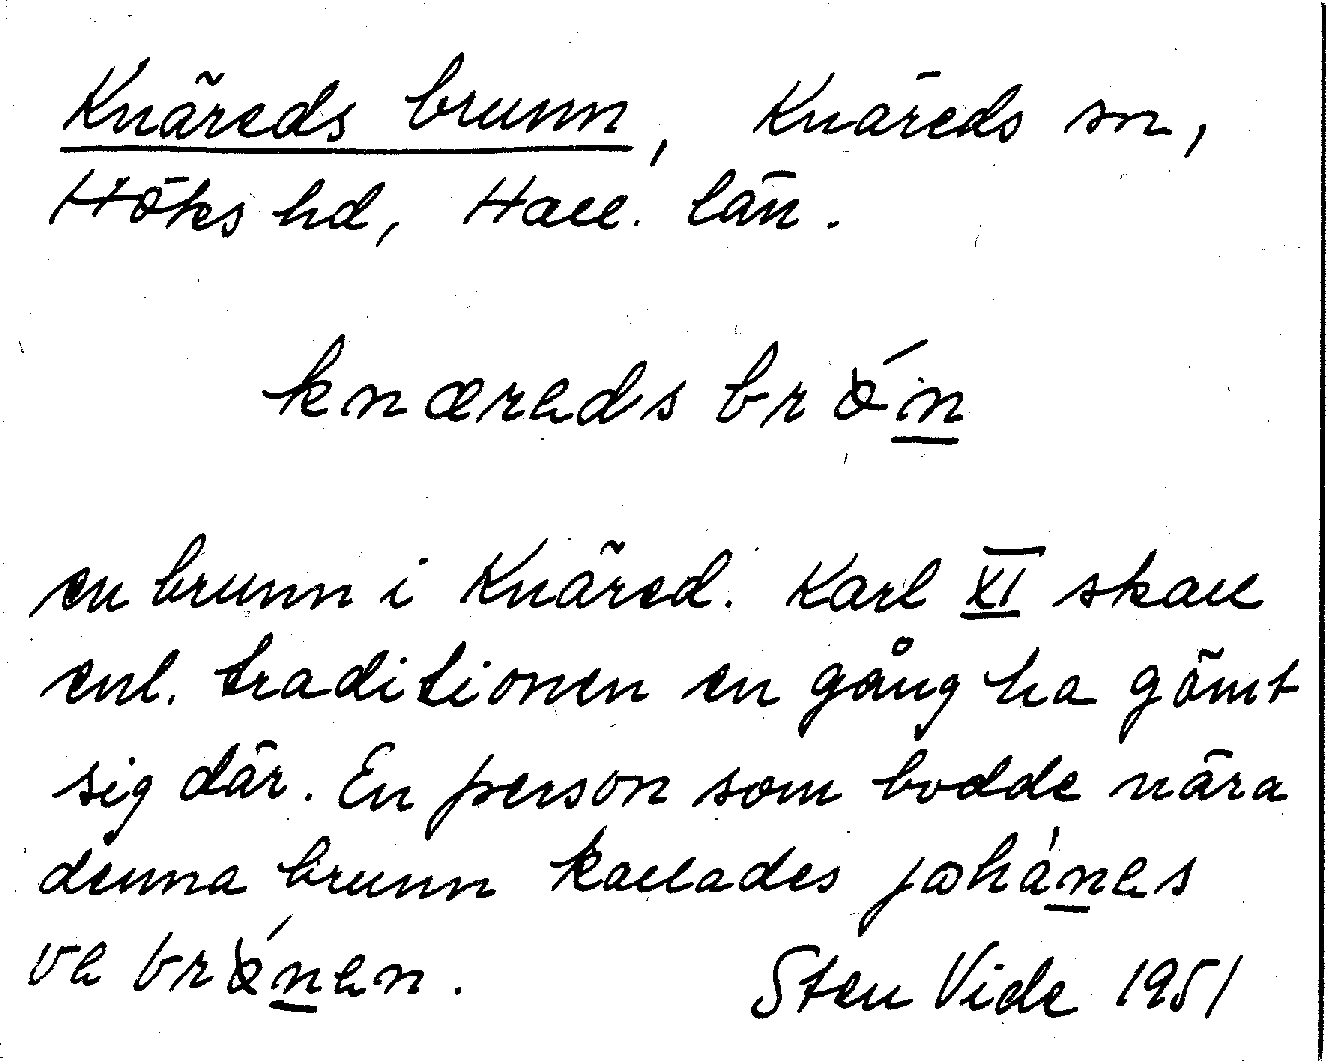 Knäreds brunn, Knäreds sn,
Höks hd, Hall. län.
knæreds brǿn
en brunn i Knäred. Karl XI skall
enl. traditionen en gång ha gömt
sig där. En person som bodde nära
denna brunn kallades johánes
ve brǿnen.
Sten Vide 1951